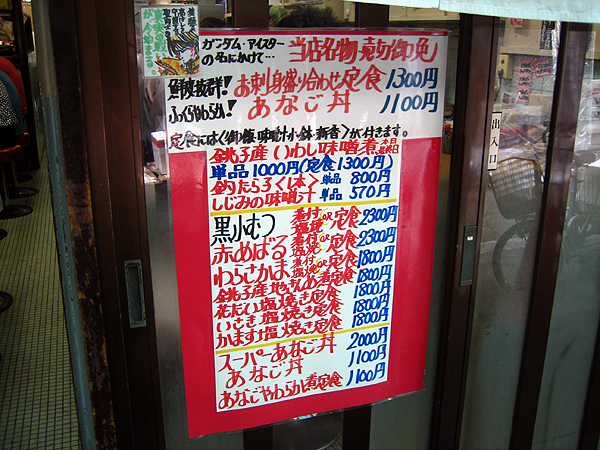 ガンダム・アイスター
の名にかけて…
当店名物・売切御免!
鮮度抜群!
お刺身盛り合わせ定食 1300円
ふっくらやわらか!
あなご丼 1100円
定食には<御飯・味噌汁・小鉢・新香>が付きます。
銚子産 いわし味噌煮
単品1000円(定食1300円)
釣たらふくはく 単品 800円
しじみの味噌汁 単品 570円
黒むつ 煮付or塩焼 定食 2300円
赤めばる 煮付or塩焼 定食 2300円
わらさかま 煮付or塩焼 定食 1800円
銚子産地きんめ煮定食 1800円
花だい塩焼き定食 1800円
いさき塩焼き定食 1800円
かます塩焼き定食 1800円
スーパーあなご丼 2000円
あなご丼 1100円
あなごやわらか煮定食 1100円
出入口